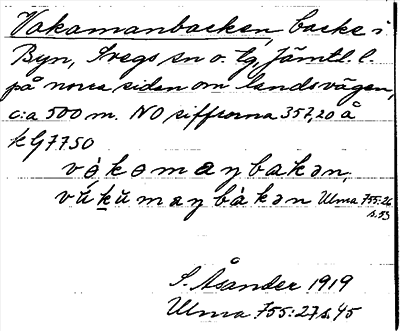 Vakamanbacken, backe i
Byn, Svegs sn o. tg, Jämtl. l.
på norra sidan om landsvägen,
c:a 500 m. NO siffrorna 357,20 å
k G 7750
vákomaŋbakən,
vŭkŭmaŋbàkən Ulma 755:26
s. 53
S. Åsander 1919
Ulma 755:27 s. 45